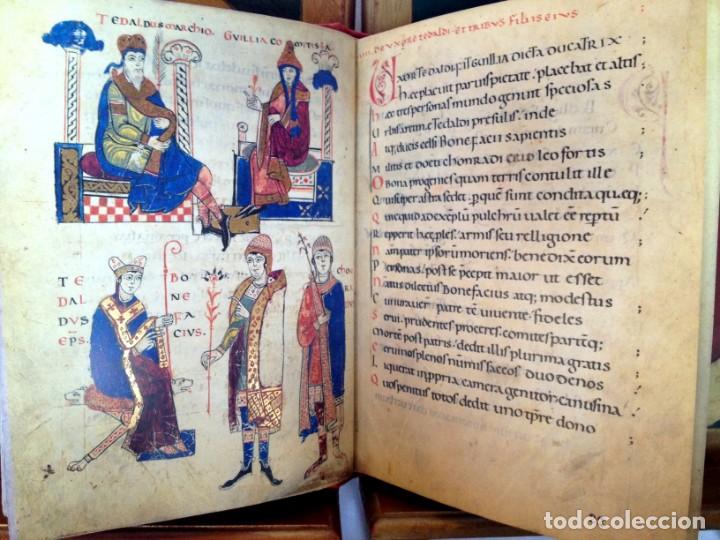 TEDALDUS MARCHIO. GVILLIA COMITISSA
TE
DAL
DUS
EPS.
BO
NE
FA
CIUS.
CHO
DE VXORE TEDALDI ET TRIBUS FILIIS EIUS
VXOR TEDALDI FIT GUILLIA DICTA DUCATRIX
hec placuit parvis pietate placebat et altis
tres personas mundo genuit speciosas
presulis inde
ducis celsi Bonefacii sapientis
Militis et docti chonradi ceu leo fortis
Bona progenies quam terris contulit ille
Qui super astra sedet per quem sunt condita queque
Nequid ad exemplu pulchru valet ee reptu
armis seu relligione
ipsorum moriens benedix eorum
Personas post se pcepit maior ut esset
Natus dilectus Bonefacius atq; modestus
patre tamen vivente fideles
Servi prudentes proceres comites pariteq;
Morte post patris dedit illis plurima gratis
plenos nummis saccos duodenos
Liquerat in ppria camera genitor
Quos penitus totos dedit uno tpre dono
todocoleccion.net